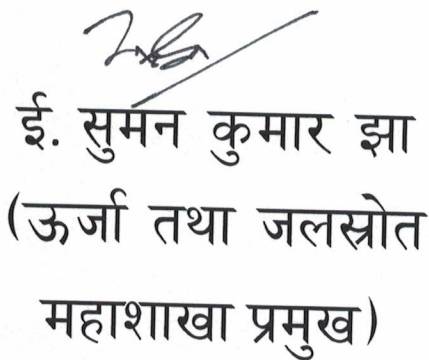 ई. सुमन कुमार झा
(ऊर्जा तथा जलस्रोत
महाशाखा प्रमुख)